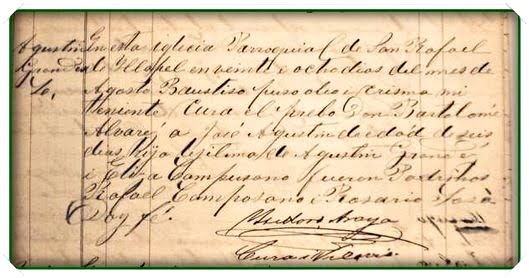 Agustin En esta iglecia Parroquial de San Rafael
de Illapel en veinte i ocho dias del mes de
Agosto Bautiso puso oleo i crisma mi
teniente Cura el Prebo Don Bartolomé
Alvarez a José Agustin de edad de seis
dias hijo lejitimo de Agustin
i Eliza Campusano fueron Padrinos
Rafael Camposano i Rosario
Doy fé.
Araya
Cura i Vicario